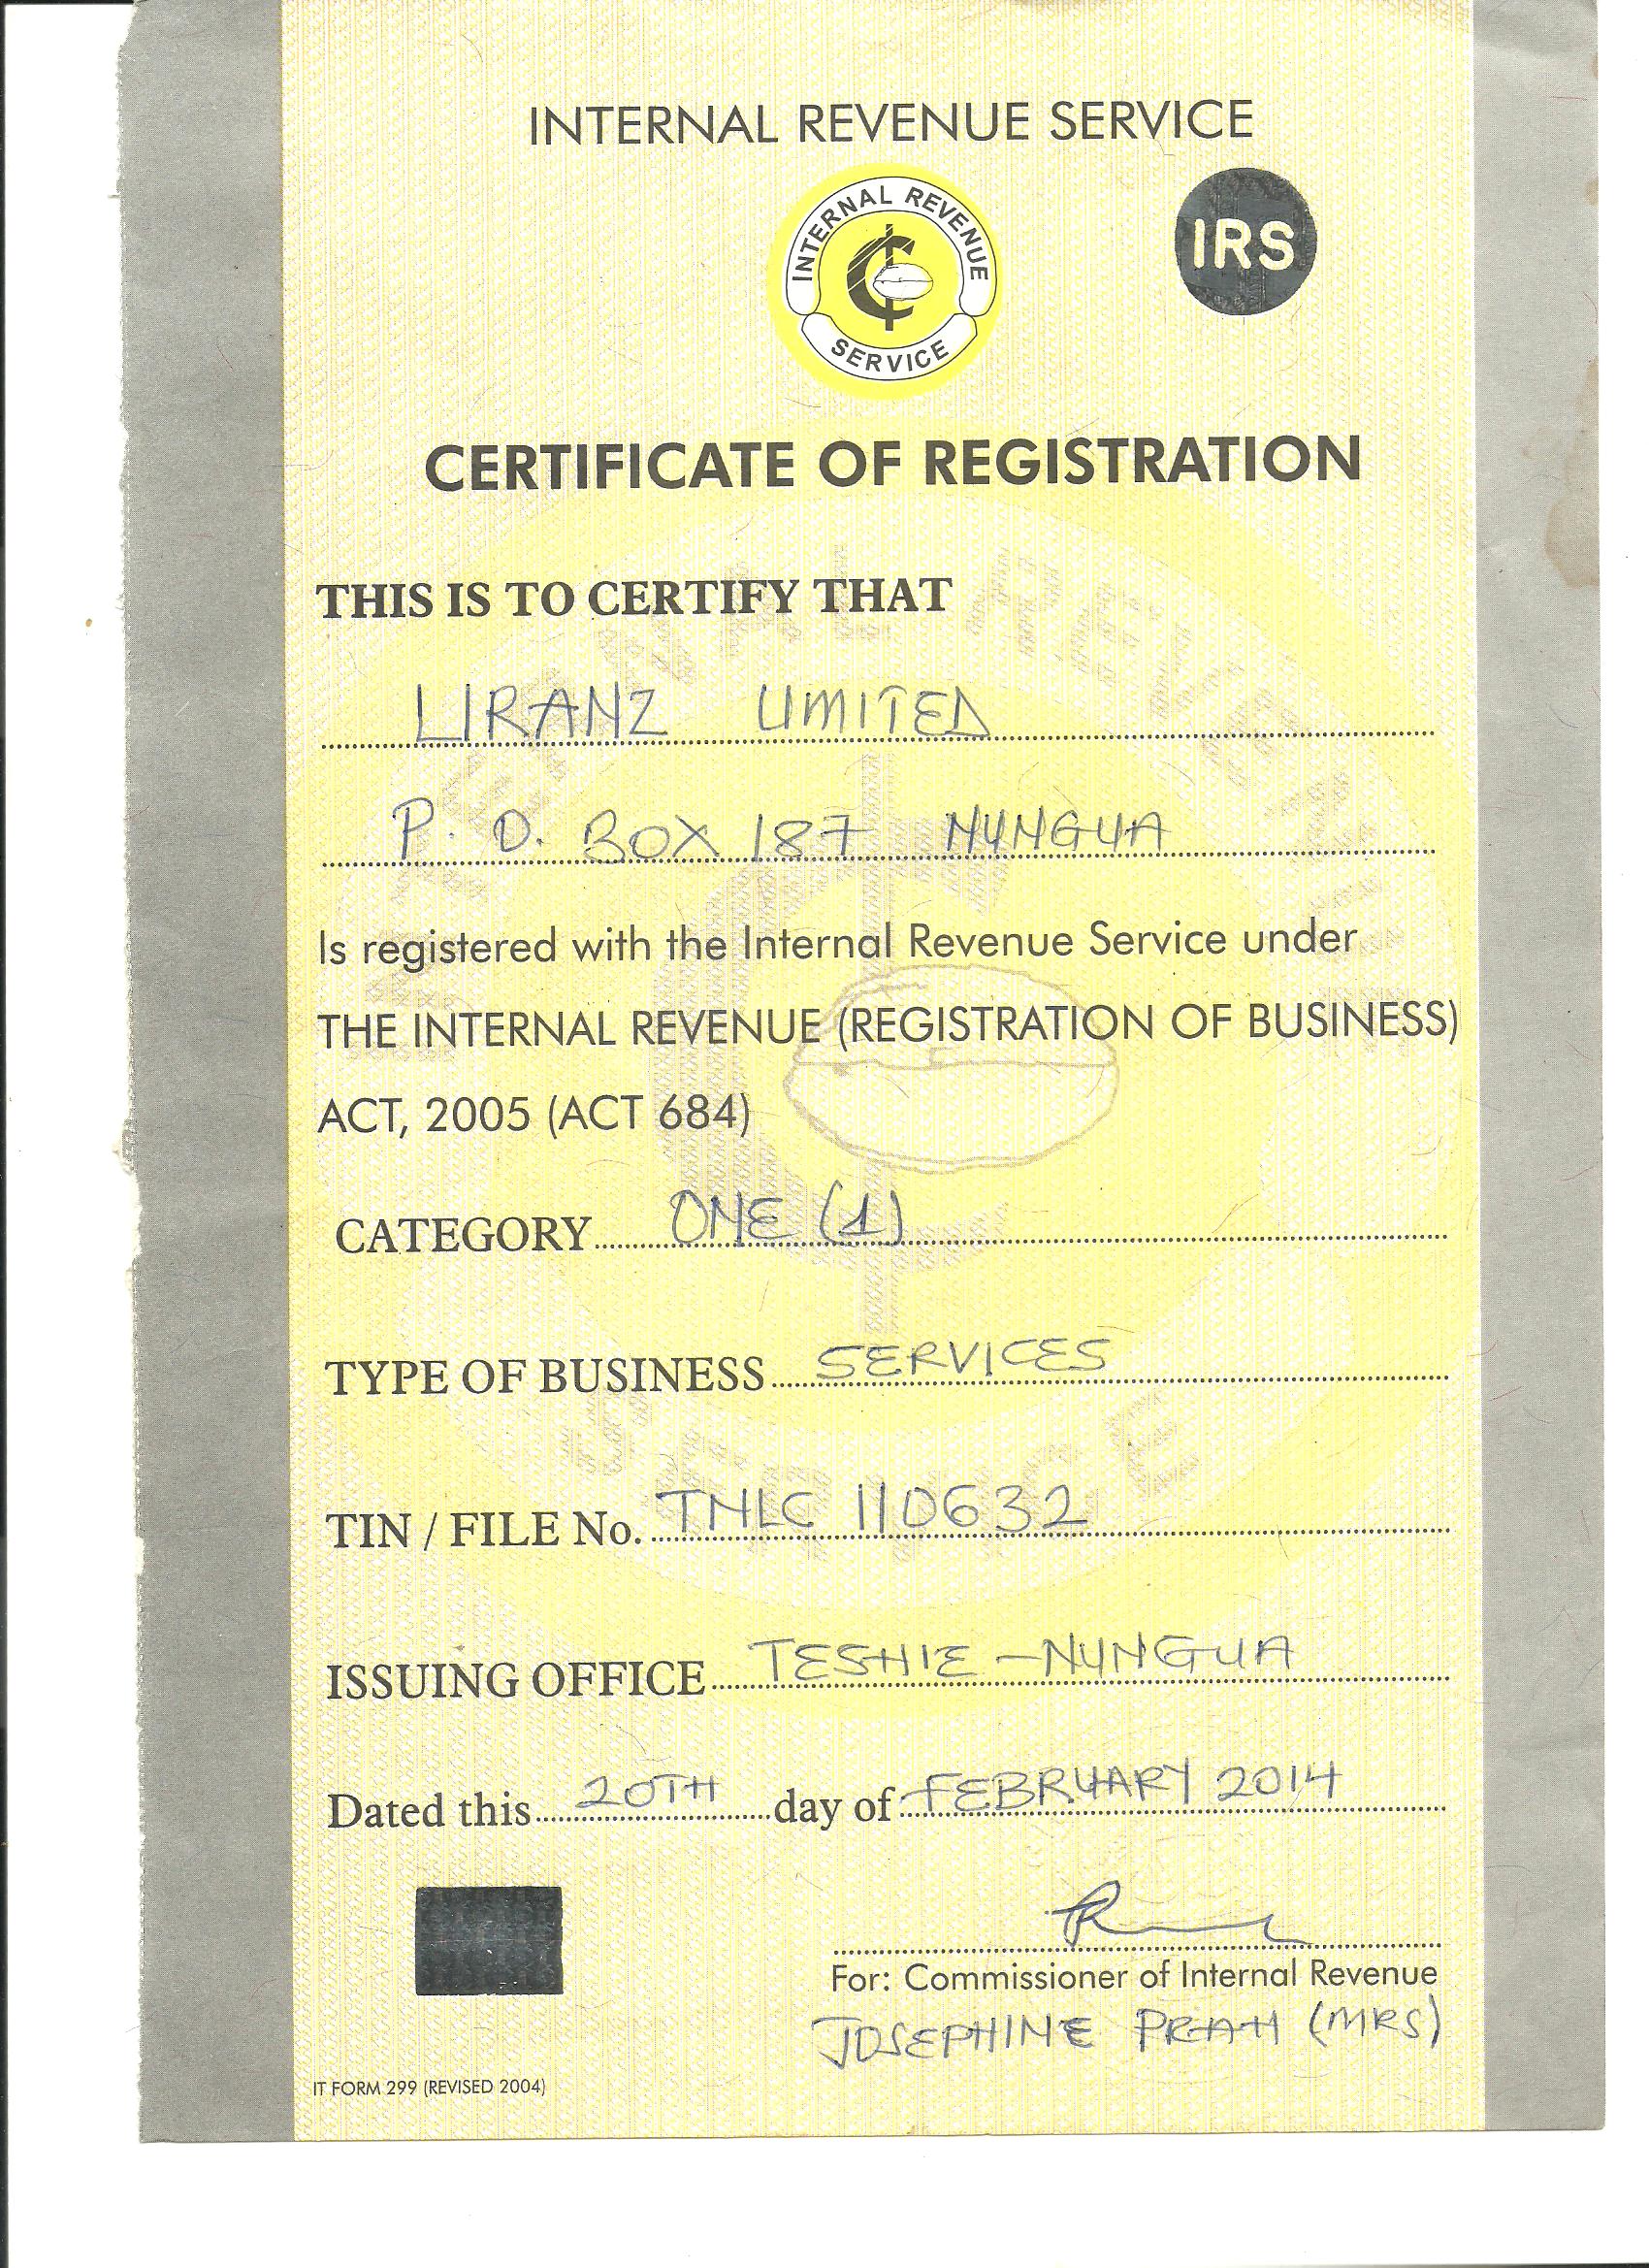 INTERNAL REVENUE SERVICE
INTERNAL REVENUE
SERVICE
IRS
CERTIFICATE OF REGISTRATION
THIS IS TO CERTIFY THAT
LIRANZ LIMITED
P. O. BOX 187 NUNGUA
Is registered with the Internal Revenue Service under
THE INTERNAL REVENUE (REGISTRATION OF BUSINESS)
ACT, 2005 (ACT 684)
CATEGORY ONE (1)
TYPE OF BUSINESS SERVICES
TIN / FILE No. TNLC 110632
ISSUING OFFICE TESHIE - NUNGUA
Dated this 20TH day of FEBRUARY 2014
For: Commissioner of Internal Revenue
JOSEPHINE PRAH (MRS)
IT FORM 299 (REVISED 2004)